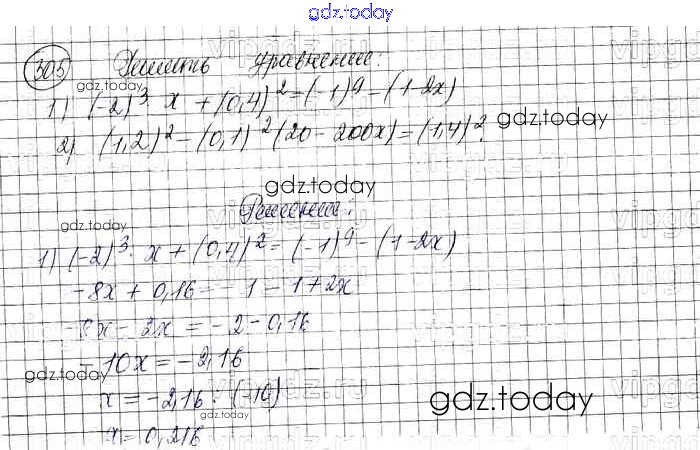 gdz.today
305 Решить уравнение:
gdz.today
1) (-2)³ x + (0,4)² = (-1)⁹ - (1-2x)
2) (1,2)² - (0,1)² (20 - 200x) = (1,4)².
gdz.today
gdz.today
Решение:
gdz.today
1) (-2)³ · x + (0,4)² = (-1)⁹ - (1-2x)
-8x + 0,16 = -1 - 1 + 2x
-8x - 2x = -2 - 0,16
-10x = -2,16
gdz.today
x = -2,16 : (-10)
gdz.today
gdz.today
x = 0,216